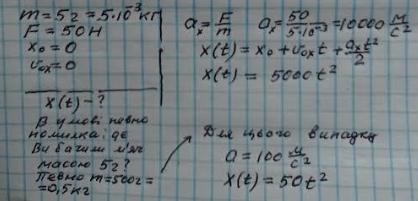 m=5г=5·10⁻³кг
F=50Н
x₀=0
v₀ₓ=0
x(t)-?
В умові певно
помилка: де
Ви бачили м'яч
масою 5г?
Певно m=500г=
=0,5кг
aₓ=F/m aₓ=50/5·10⁻³=10000 м/с²
x(t)=x₀+v₀ₓt+aₓt²/2
x(t)=5000t²
Для цього випадку
a=100 м/с²
x(t)=50t²